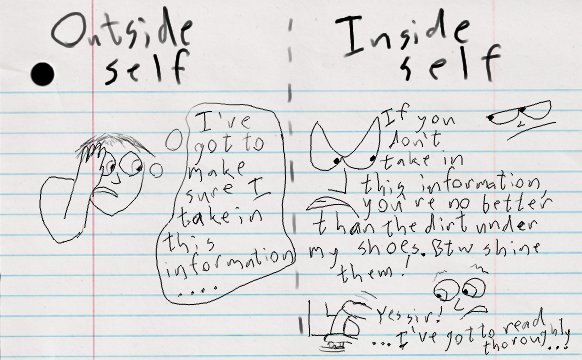 Outside
self
I've
got to
make
sure I
take in
this
information
....
Inside
self
If you
don't
take in
this information,
you're no better
than the dirt under
my shoes. Btw shine
them!
Yessir!
...I've got to read
thoroughly...